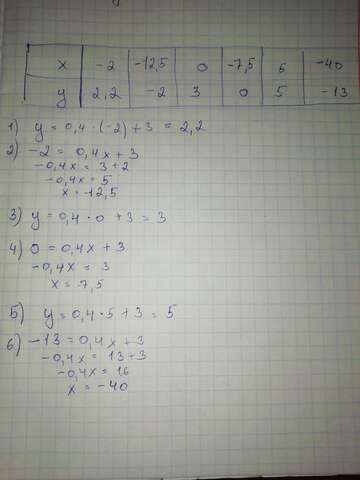 x -2 -12,5 0 -7,5 5 -40
y 2,2 -2 3 0 5 -13
1) y = 0,4 · (-2) + 3 = 2,2
2) -2 = 0,4x + 3
-0,4x = 3 + 2
-0,4x = 5
x = -12,5
3) y = 0,4 · 0 + 3 = 3
4) 0 = 0,4x + 3
-0,4x = 3
x = -7,5
5) y = 0,4 · 5 + 3 = 5
6) -13 = 0,4x + 3
-0,4x = 13 + 3
-0,4x = 16
x = -40